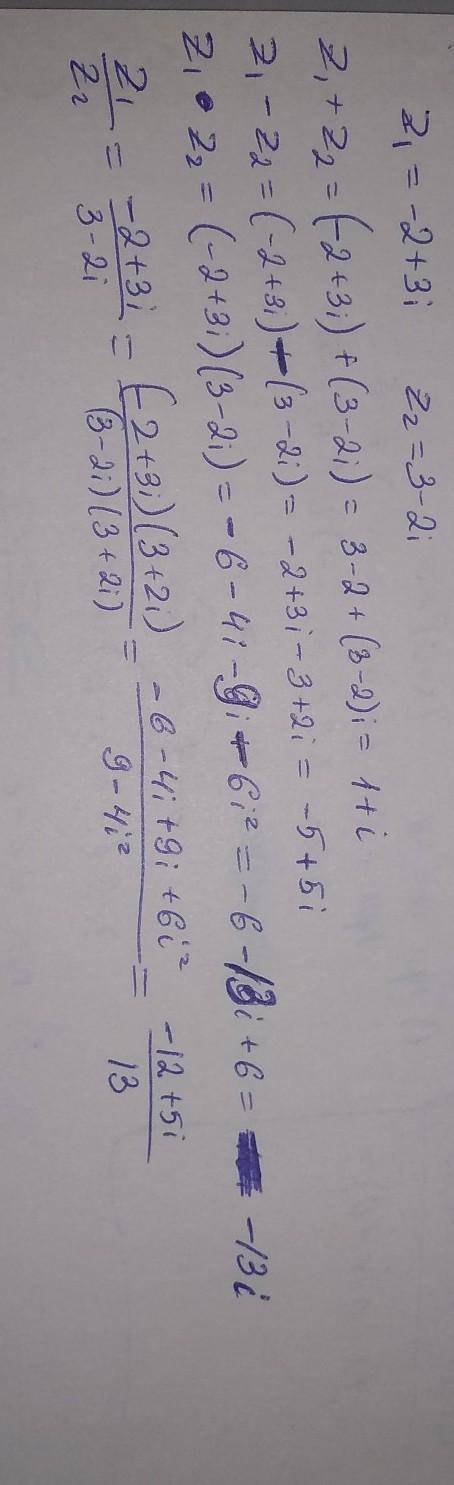 z₁ = -2+3i z₂ = 3-2i
z₁ + z₂ = (-2+3i) + (3-2i) = 3-2 + (3-2)i = 1+i
z₁ - z₂ = (-2+3i) - (3-2i) = -2+3i-3+2i = -5+5i
z₁ • z₂ = (-2+3i)(3-2i) = -6 - 4i - 9i - 6i² = -6 - 13i + 6 = -13i
z₁/z₂ = (-2+3i)/(3-2i) = (-2+3i)(3+2i)/(3-2i)(3+2i) = (-6-4i+9i+6i²)/(9-4i²) = (-12+5i)/13